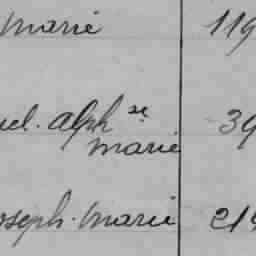 Marie 119
uel. Alph se 39
Marie
oseph. Marie 219